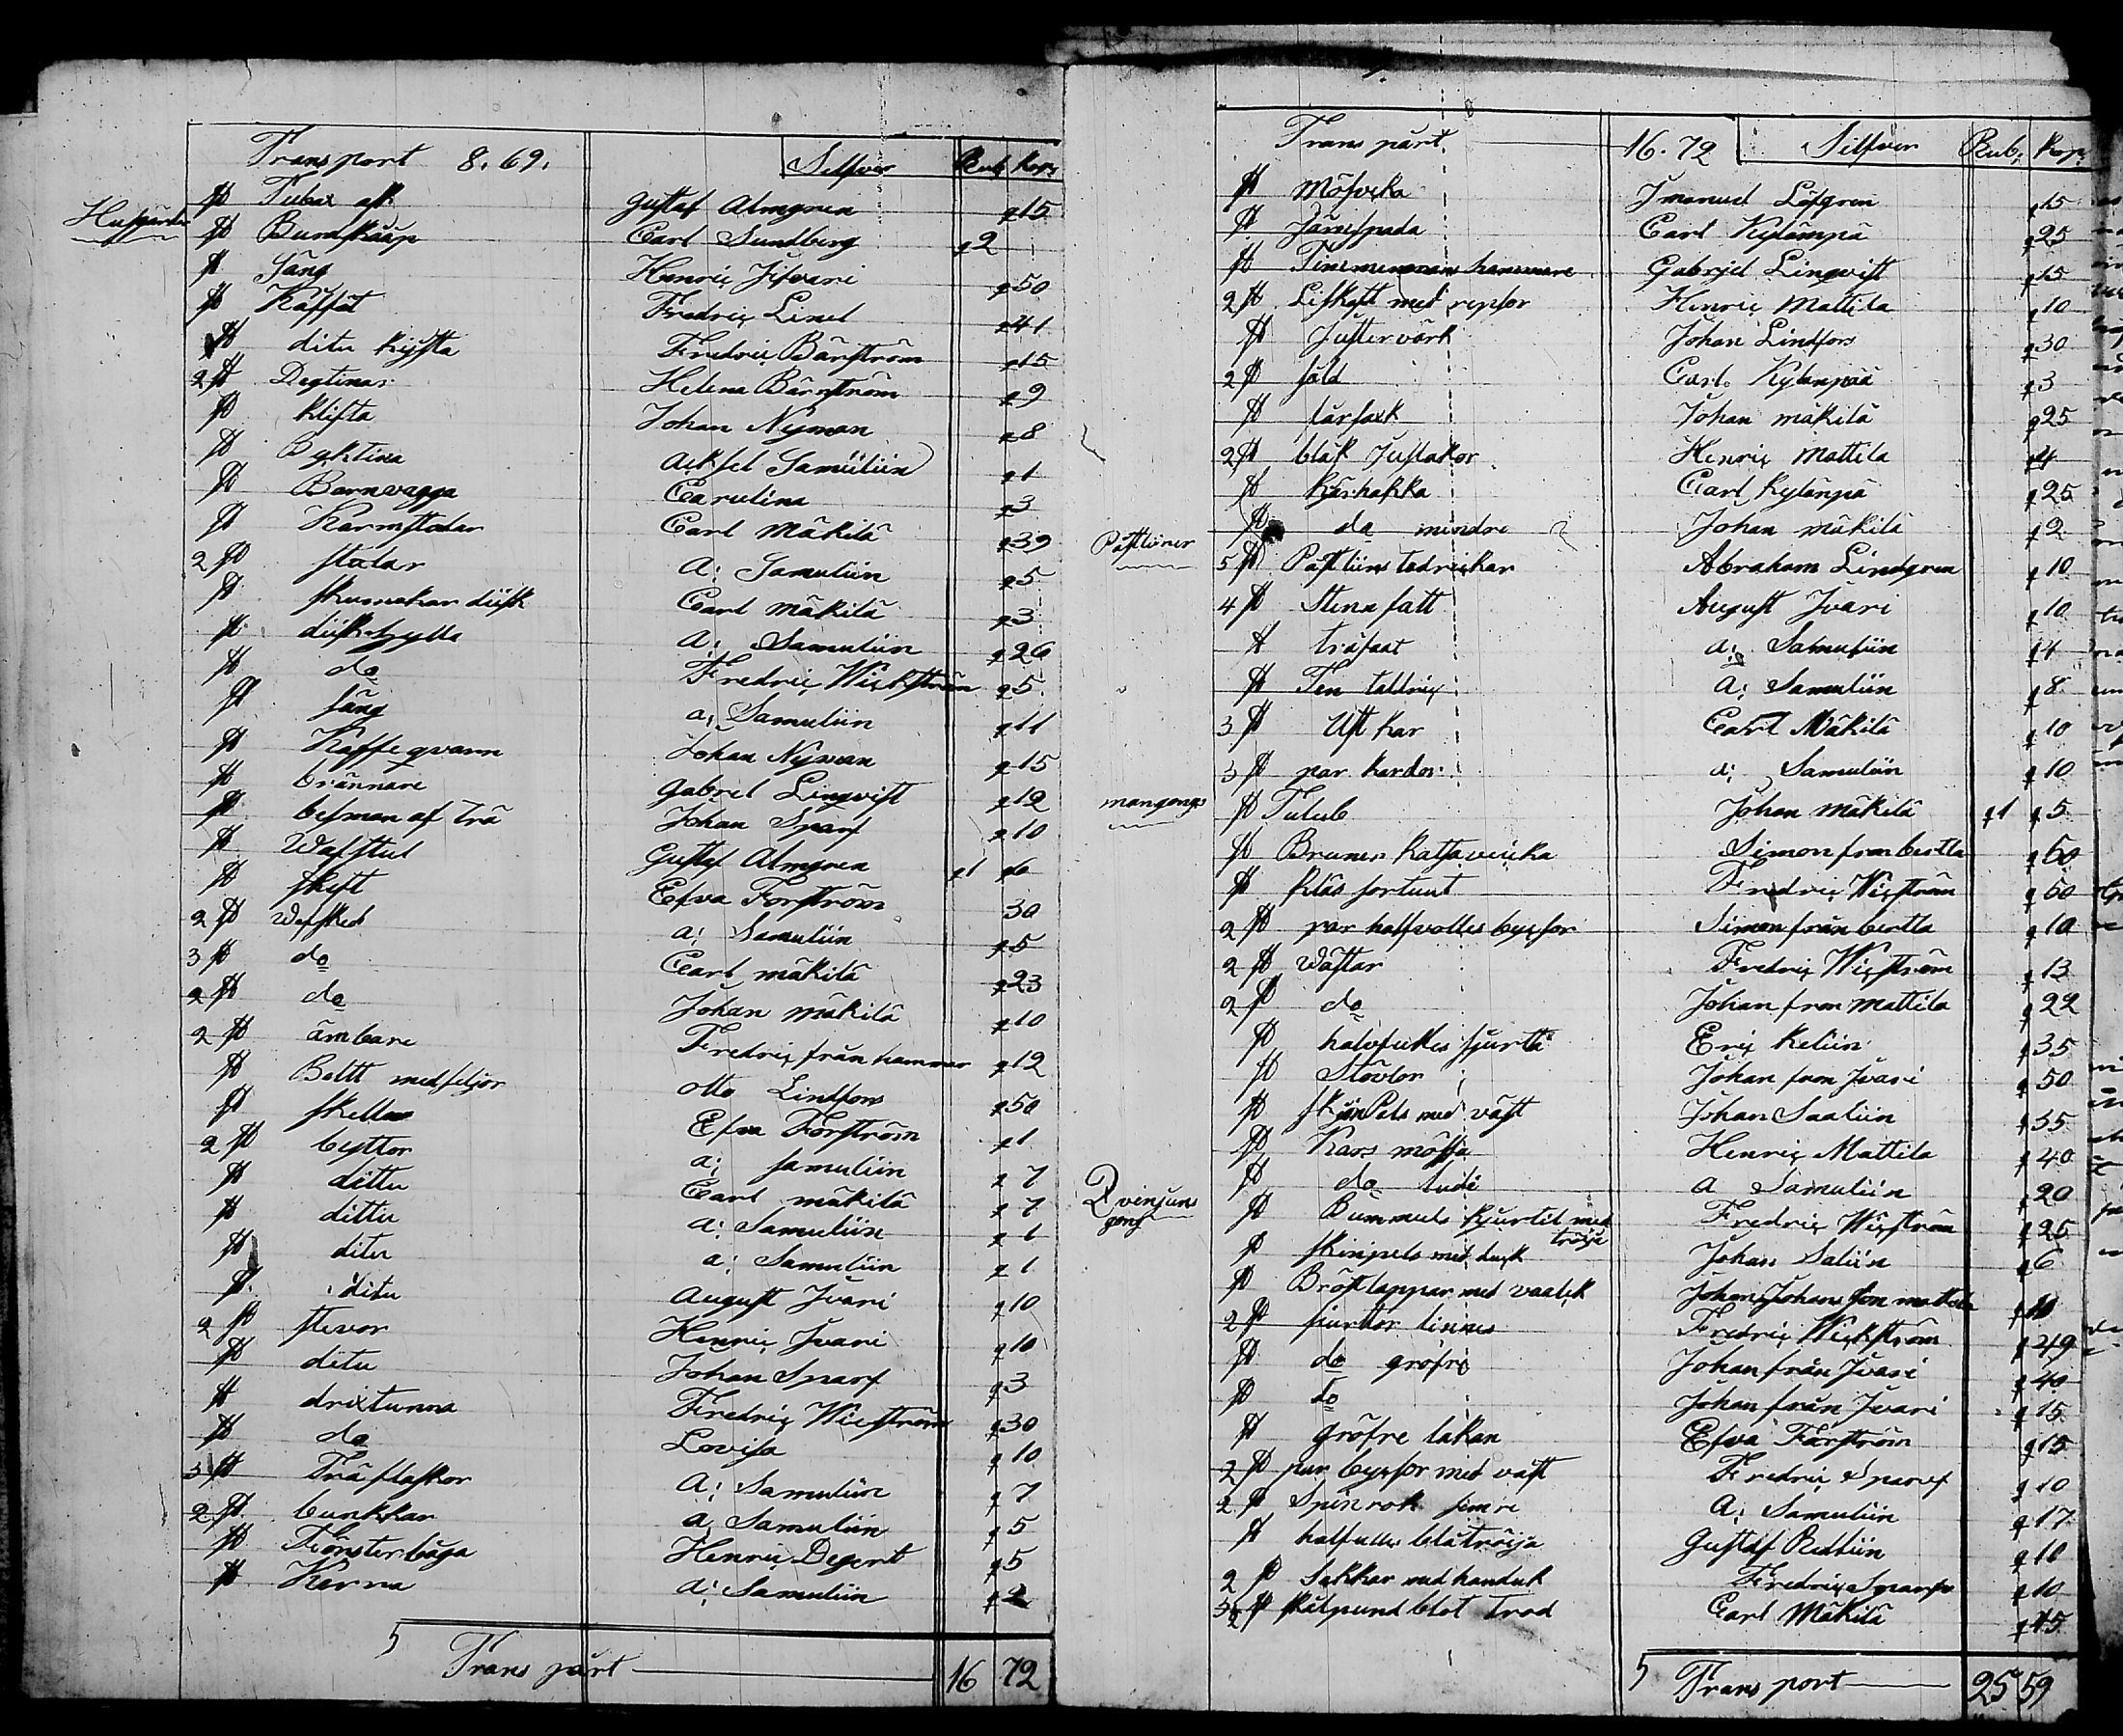 Transport 8. 69. Silfver Rub kop:
st Tubax ask Gustaf Almgren 15
st Burdskååp Carl Sundberg 2
st Säng Henric Jifvari 50
st Käffät Fredric Linel 41
st ditu kijsta Fredric Bärström 15
2 st Degtinar Helena Bärström 9
st klifta Johan Nyman 8
st Byktina Acksel Samuliin 1
st Barnvagga Carulina 3
st Karmstolar Carl Mäkilä 39
2 st stolar A: Samuliin 5
st skumakar disk Carl Mäkilä 3
st disk hylla A: Samuliin 26
st do Fredric Wickström 5
st säng a: Samuliin 11
st Kaffe qvarn Johan Nyman 15
st brännare Gabrel Linqvist 12
st besman af Trä Johan Sparf 10
st Wäfstul Gustaf Almgren 1 6
st skeft Efva Forström 30
2 st Wefsked a: Samuliin 5
3 st do Carl mäkilä 23
2 st do Johan mäkilä 10
2 st ämbare Fredric från hammar 12
st Beltt med seljor Otto Lindfors 50
st Efva Forström 1
2 st byttor a: samuliin 7
st dittu Carl mäkilä 7
st dittu a: Samuliin 1
st ditu a: Samuliin 1
st ditu August Jvari 10
2 st stevor Henric Jvari 10
st ditu Johan Sparf 3
st drixtunna Fredric Wicström 30
st do Lovisa 10
3 st Trä flaskor A: Samuliin 7
2 st bunkkar A Samuliin 5
st Fönsterbåga Henric Degert 5
st Kerna A: Samuliin 2
Trans pårt 16 72
Trans pårt. 16. 72 Silfver Rub. Kop:
st Mösveka Jmanuel Löfgren 15
st Järnspada Carl Kylämpä 25
st Gabrjel Linqvist 15
2 st Liskaft med repsor Henric Mattila 10
st Justervärk Johan Lindfors 30
2 st såld Carl Kylänpää 3
st lärsaxk Johan makilä 25
2 st bläk Justakor Henric Mattila 4
st Kärhakka Carl Kylänpä 25
st do mindre Johan mäkilä 2
Påstliner
5 st Påstliins tadrickar Abraham Lindgren 10
4 st Stena fatt August Jvari 10
st träfaat a: Samuliin 4
st Ten talldric A: Samuliin 8
3 st Ust kar Carl Mäkilä 10
3 st par kardor a: Samuliin 10
mangongs
st Tulub Johan Mäkilä 1 5
st Brunen Katsaveicka Simon fron bertla 60
st Kläs sortuut Fredric Wicström 60
2 st par halfvolles byxsor Simon från bertla 10
2 st Wästar Fredric Wicström 13
2 st do Johan fron Mattila 22
st halvsukes sjurtä Eric Keliin 35
st Stövlor Johan fron Jvari 50
st skin Pels med väst Johan Saaliin 35
st Kars mössa Henric Mattila 40
st do ludi A Samuliin 20
Qvinsuns
gong
st Bummuls kjurtil med
tröija Fredric Wicström 25
st skinpels med duk Johan Saliin 6
st Bröstlappar med vaalck Johan Johans son mattila 10
2 st siurttor linnes Fredric Wickström 49
st do gröfre Johan från Jvari 40
st do Johan från Jvari 15
st gröfre lakan Efva Färström 15
2 st par byxsor med väst Fredric Sparf 10
2 st Spinrok sinre A: Samuliin 17
st halfulles blå tröija Gustaf Rustiin 10
2 st Sakkar med handuk Fredric Sparf 10
st skålpund blot trod Carl Mäkilä 45
Trans port 25 59